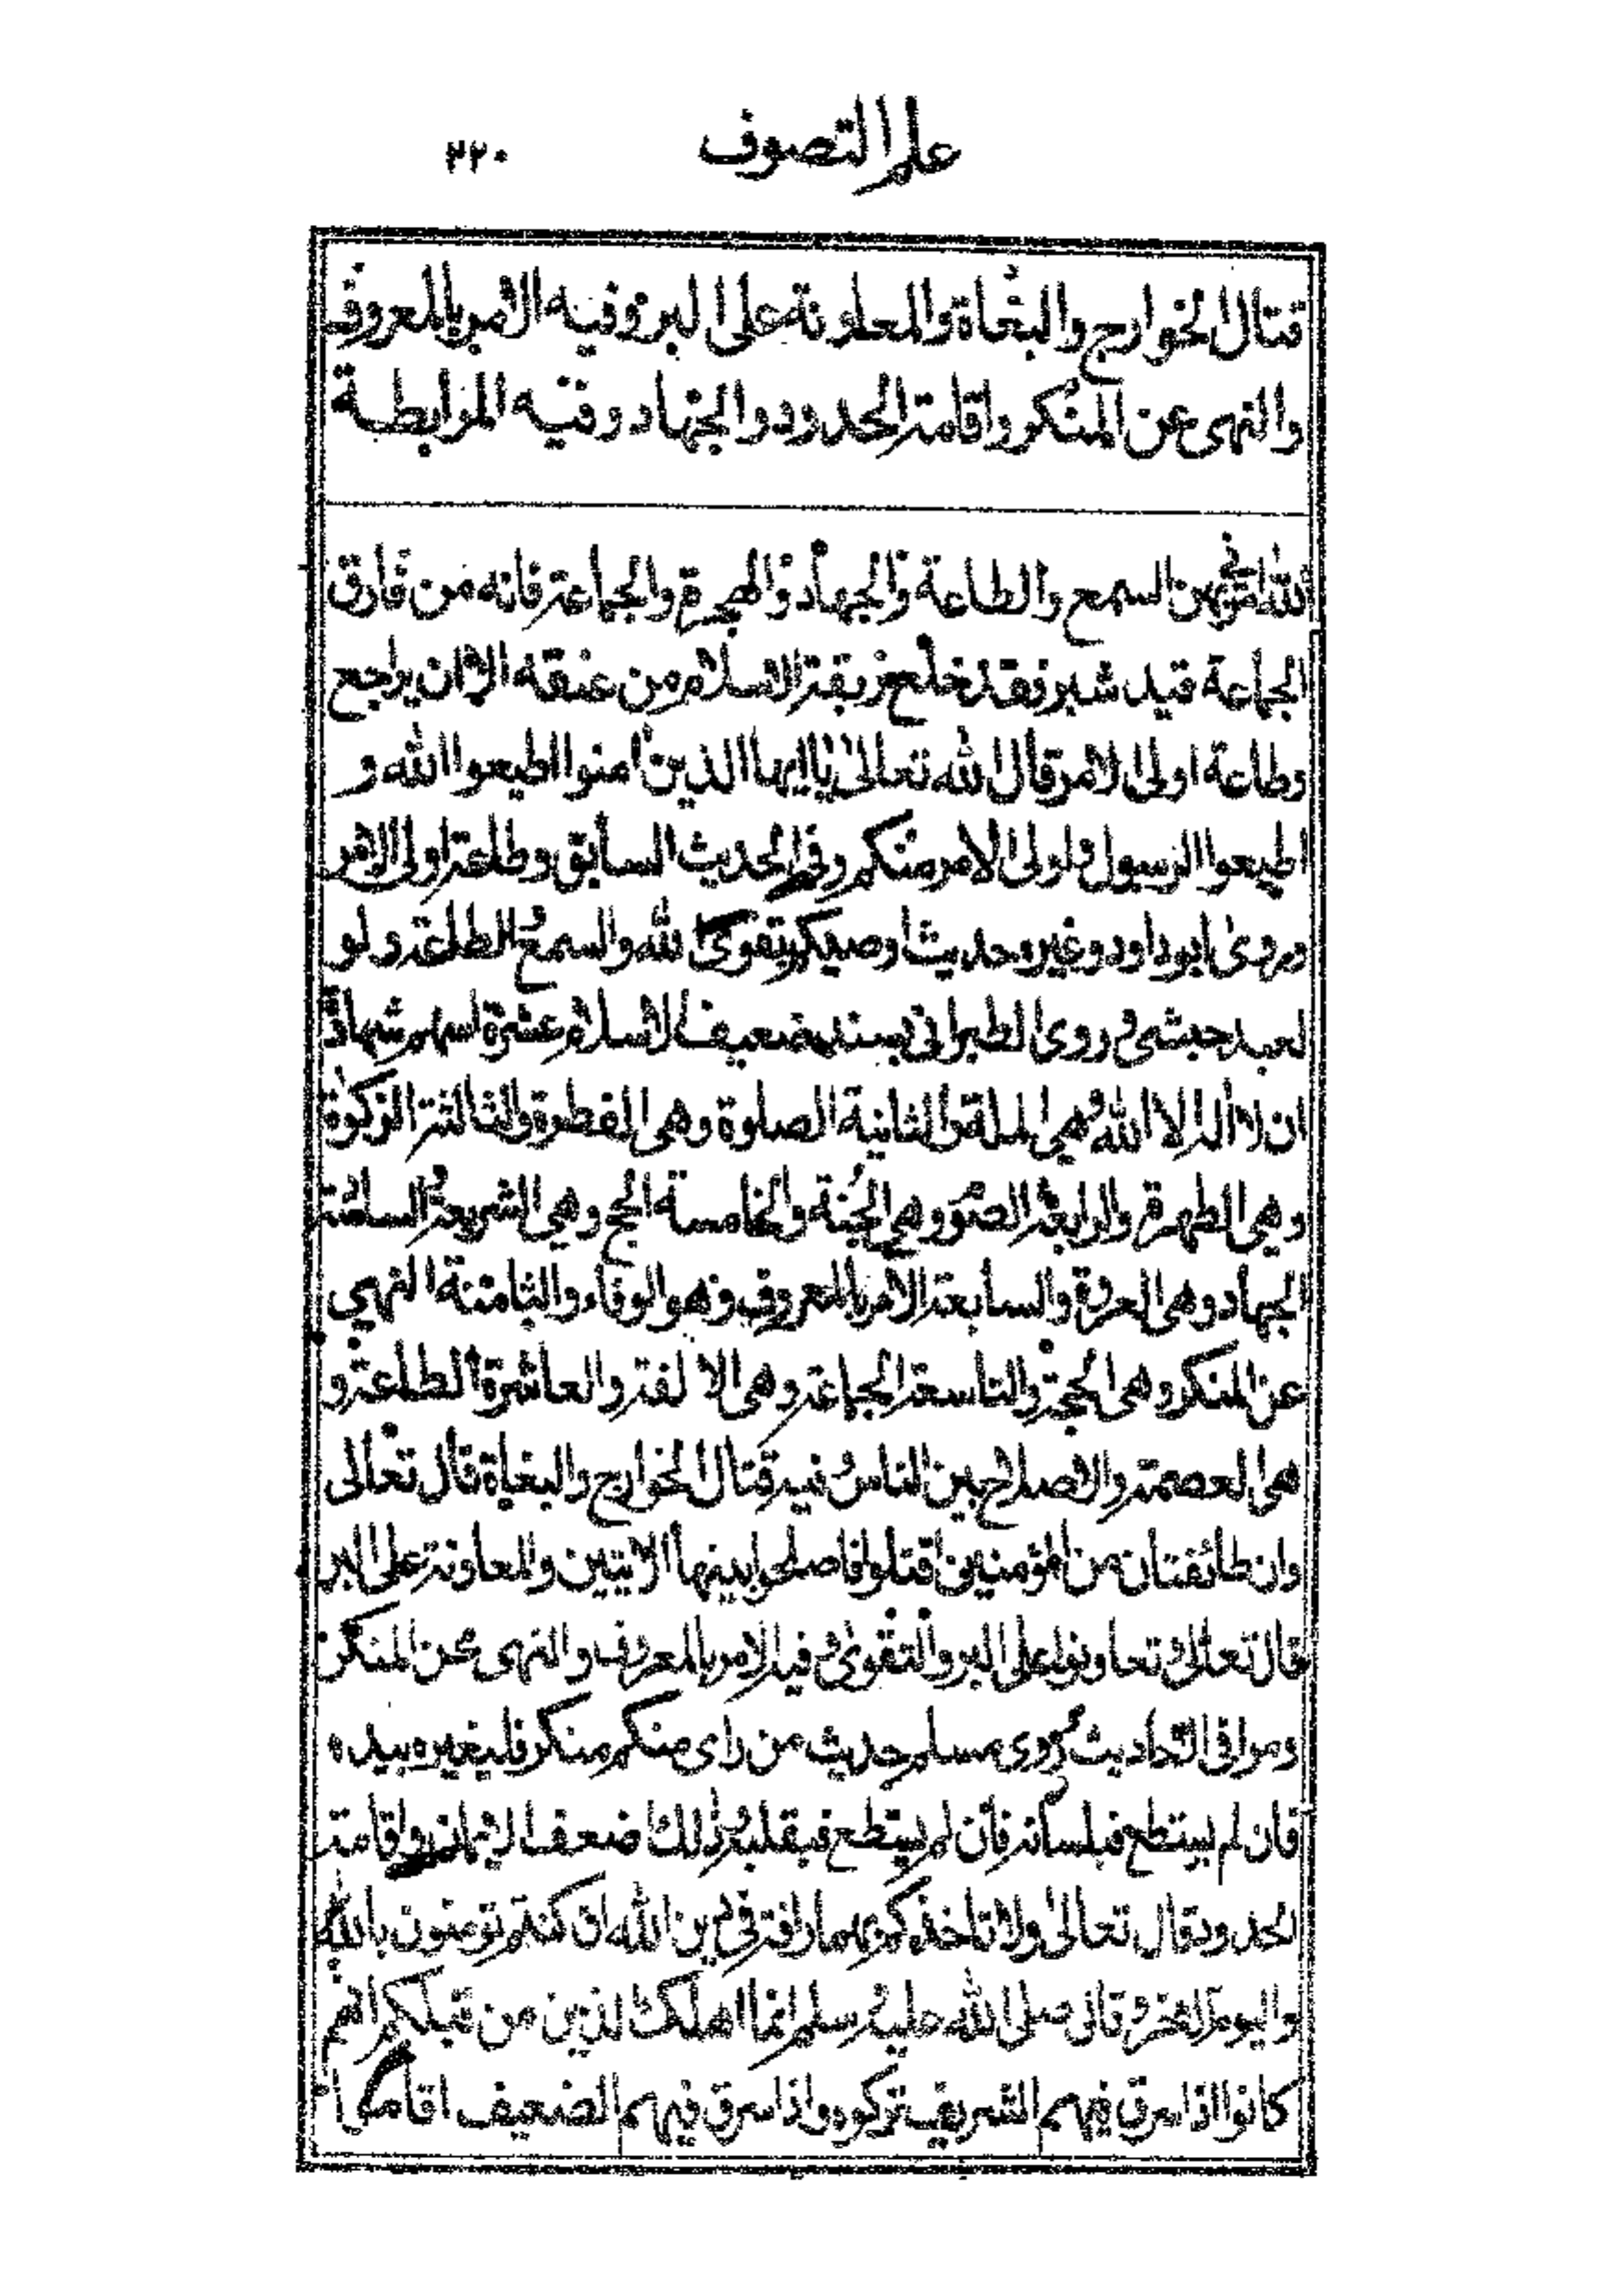 علم التصوف ٢٢٠
قتال الخوارج والبغاة والمعاونة على البر وفيه الامر بالمعروف
والنهى عن المنكر واقامة الحدود والجهاد وفيه المرابطة
الله امرنى بهن السمع والطاعة والجهاد والهجرة والجماعة فانه من فارق
الجماعة قيد شبر فقد خلع ربقة الاسلام من عنقه الا ان يراجع
وطاعة اولى الامر قال الله تعالى يا ايها الذين امنوا اطيعوا الله و
اطيعوا الرسول واولى الامر منكم وفى الحديث السابق وطاعة اولى الامر
وروى ابو داود وغيره حديث اوصيكم بتقوى الله والسمع والطاعة ولو
لعبد حبشى وروى الطبرانى بسند ضعيف الاسلام عشرة اسهم شهادة
ان لا اله الا الله وهى الملة والثانية الصلوة وهى الفطرة والثالثة الزكوة
وهى الطهرة والرابعة الصوم وهى الجنة والخامسة الحج وهى الشريعة والسادسة
الجهاد وهى العروة والسابعة الامر بالمعروف وهو الوفاء والثامنة النهى
عن المنكر وهى الحجة والتاسعة الجماعة وهى الالفة والعاشرة الطاعة و
هى العصمة والاصلاح بين الناس وفيه قتال الخوارج والبغاة قال تعالى
وان طائفتان من المؤمنين اقتتلوا فاصلحوا بينهما الايتين والمعاونة على البر
قال تعالى وتعاونوا على البر والتقوى وفيه الامر بالمعروف والنهى عن المنكر
ومرا فى احاديث وروى مسلم حديث من راى منكم منكر فليغيره بيده
فان لم يستطع فبلسانه فان لم يستطع فبقلبه وذلك اضعف الايمان واقامة
الحدود قال تعالى ولا تاخذكم بهما رافة فى دين الله ان كنتم تؤمنون بالله
واليوم الاخر وقال صلى الله عليه وسلم انما اهلك الذين من قبلكم انهم
كانوا اذا سرق فيهم الشريف تركوه واذا سرق فيهم الضعيف اقاموا